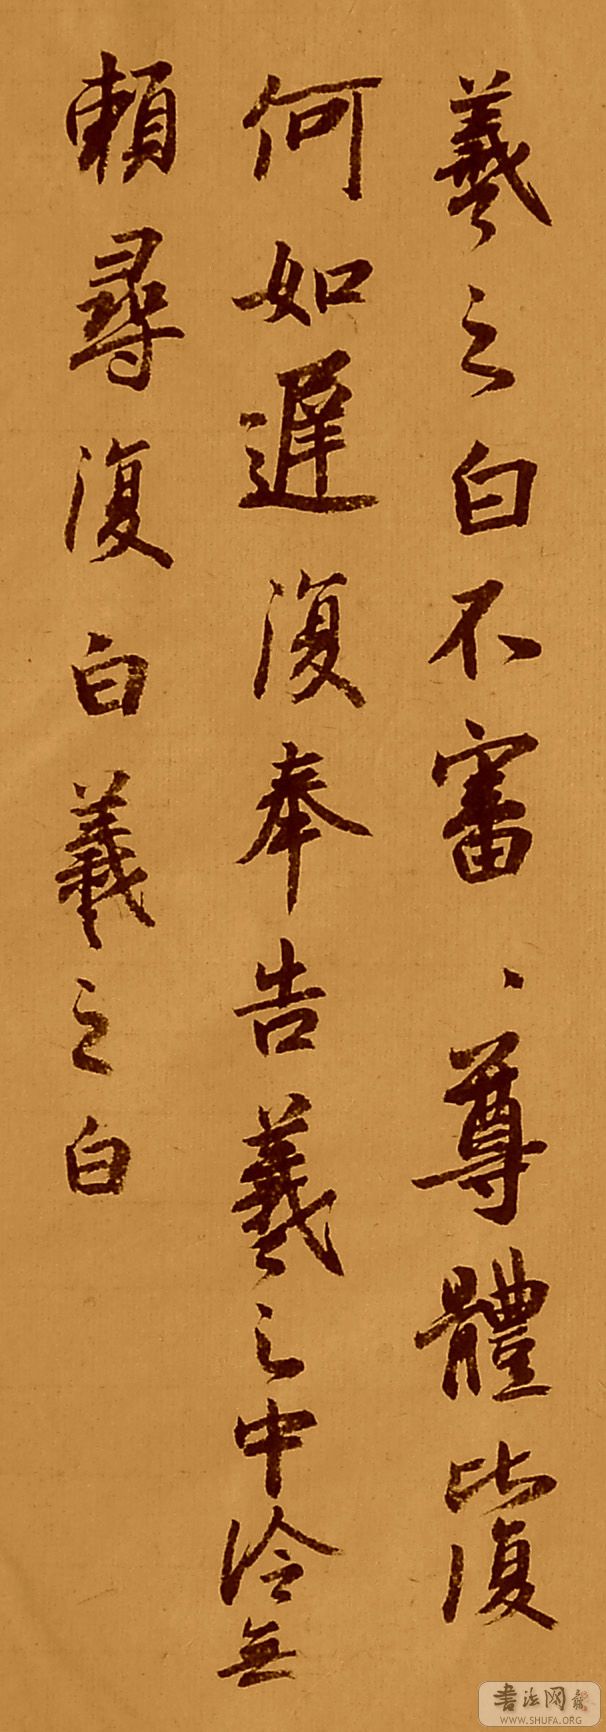 羲之白不審、尊體比復
何如遲復奉告羲之中冷無
賴尋復白羲之白
書法网
WWW.SHUFA.ORG